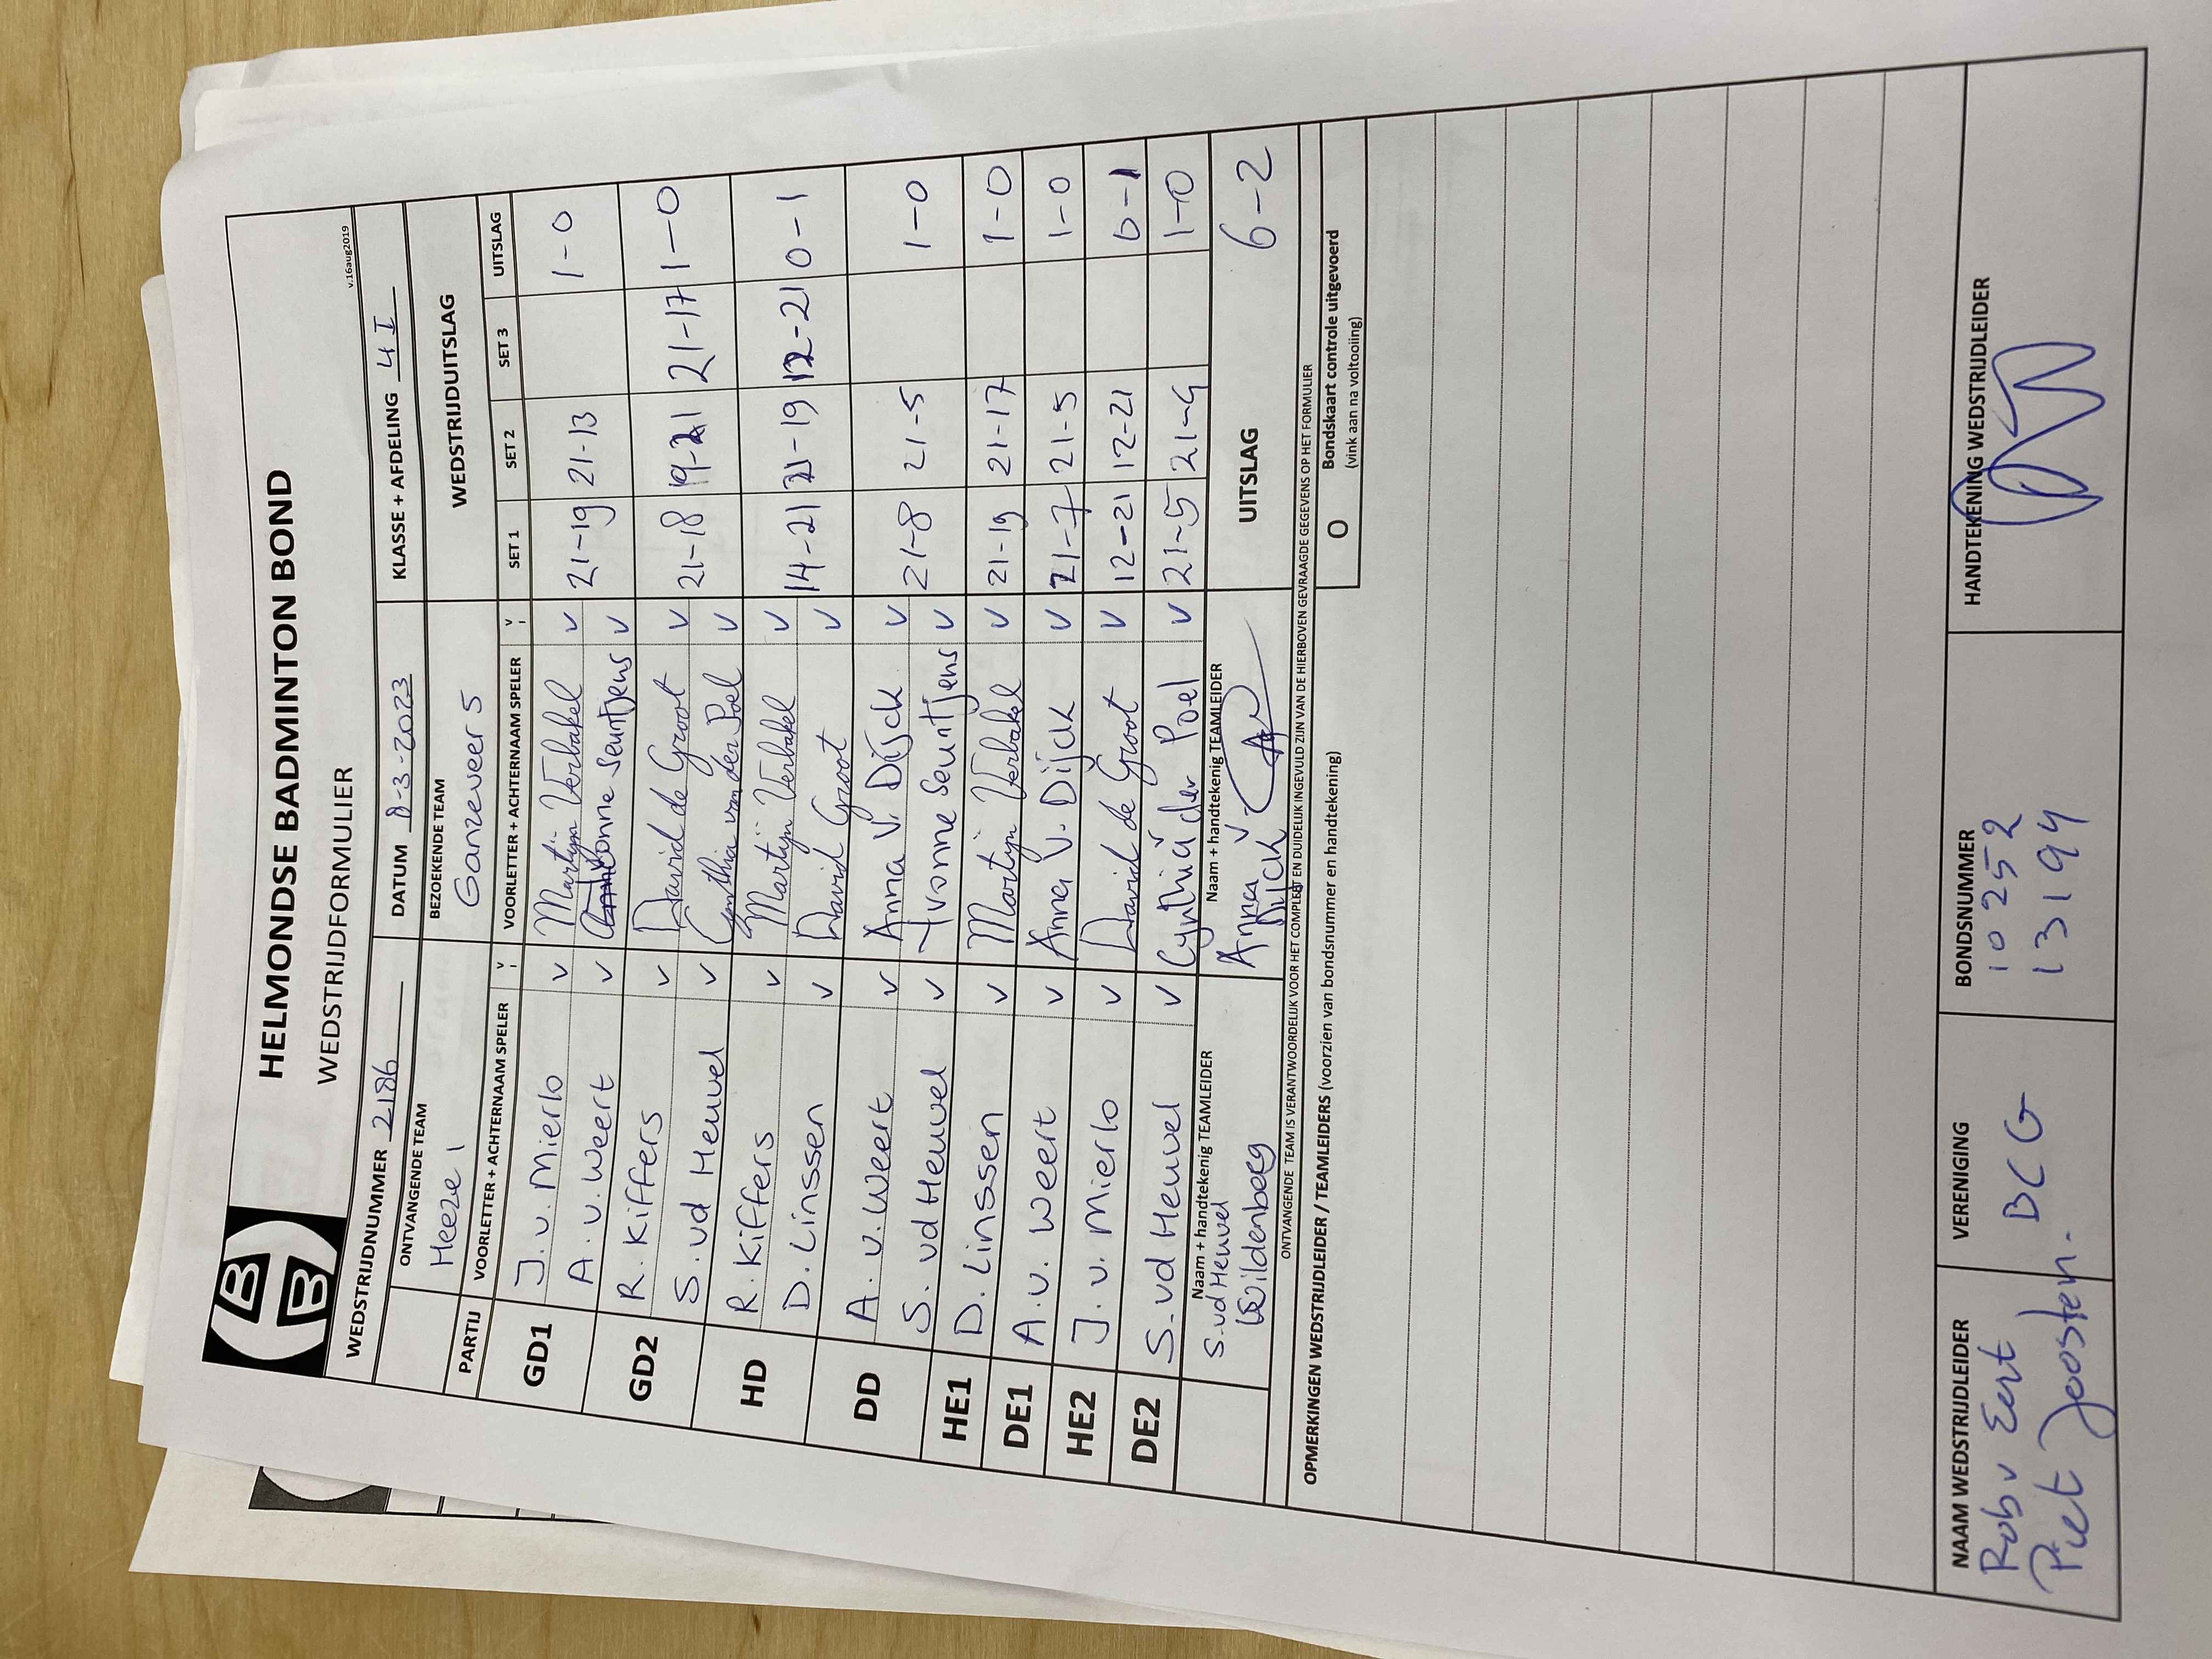 HELMONDSE BADMINTON BOND
WEDSTRIJDFORMULIER
v.16aug2019
WEDSTRIJDNUMMER 2186 DATUM 8-3-2023 KLASSE + AFDELING 4 I
ONTVANGENDE TEAM BEZOEKENDE TEAM WEDSTRIJDUITSLAG
Heeze 1 Ganzeveer 5
PARTIJ VOORLETTER + ACHTERNAAM SPELER V VOORLETTER + ACHTERNAAM SPELER V SET 1 SET 2 SET 3 UITSLAG
GD1 J. v. Mierlo v Martijn Verbakel v 21-19 21-13 1-0
A. v. Weert v Yvonne Seuntjens v
GD2 R. Kiffers v David de Groot v 21-18 19-21 21-17 1-0
S. vd Heuvel v Cynthia van der Poel v
HD R. Kiffers v Martijn Verbakel v 14-21 21-19 12-21 0-1
D. Linssen v David Groot v
DD A. v. Weert v Anna v. Dijck v 21-8 21-5 1-0
S. vd Heuvel v Yvonne Seuntjens v
HE1 D. Linssen v Martijn Verbakel v 21-19 21-17 1-0
DE1 A. v. Weert v Anna v. Dijck v 21-7 21-5 1-0
HE2 J. v. Mierlo v David de Groot v 12-21 12-21 0-1
DE2 S. vd Heuvel v Cynthia v der Poel v 21-5 21-4 1-0
Naam + handtekenig TEAMLEIDER Naam + handtekenig TEAMLEIDER UITSLAG 6-2
S. vd Heuvel Anna v
Wildenberg Dijck
ONTVANGENDE TEAM IS VERANTWOORDELIJK VOOR HET COMPLEET EN DUIDELIJK INGEVULD ZIJN VAN DE HIERBOVEN GEVRAAGDE GEGEVENS OP HET FORMULIER
OPMERKINGEN WEDSTRIJDLEIDER / TEAMLEIDERS (voorzien van bondsnummer en handtekening)
O Bondskaart controle uitgevoerd
(vink aan na voltooiing)
NAAM WEDSTRIJDLEIDER VERENIGING BONDSNUMMER HANDTEKENING WEDSTRIJDLEIDER
Rob v Eert BCG 10252
Piet Joosten. 13194